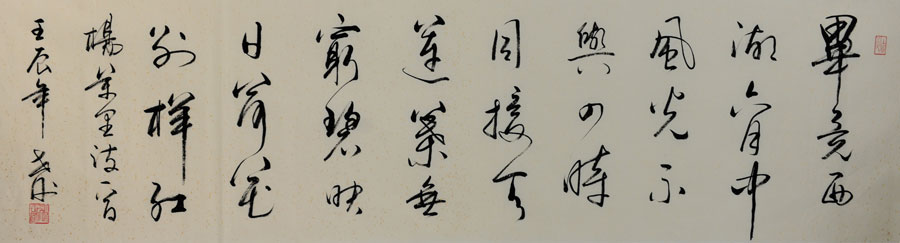 畢竟西
湖六月中
風光不
與四時
同接天
蓮葉無
窮碧映
日荷花
別樣紅
楊萬里詩一首
壬辰年